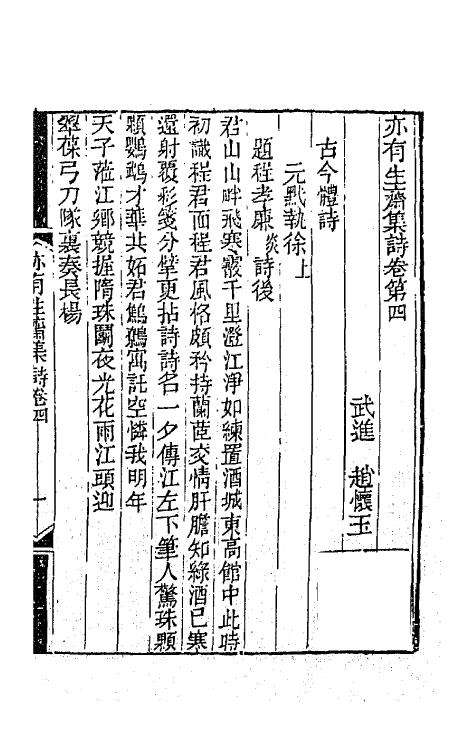 亦有生齋集詩卷第四
武進　趙懷玉
古今體詩
元黓執徐上
題程孝廉詩後
君山山畔飛寒霰千里澄江淨如練置酒城東高館中此時
初識程君面程君風格頗矜持蘭茝交情肝膽知綠酒已寒
還射覆彩箋分擘更拈詩詩名一夕傳江左下筆人驚珠顆
顆鸚鵡才華共妬君鷦鷯寓託空憐我明年
天子蒞江鄉競握隋珠鬭夜光花雨江頭迎
翠葆弓刀隊裏奏長楊
亦有生齋集　詩卷四　一